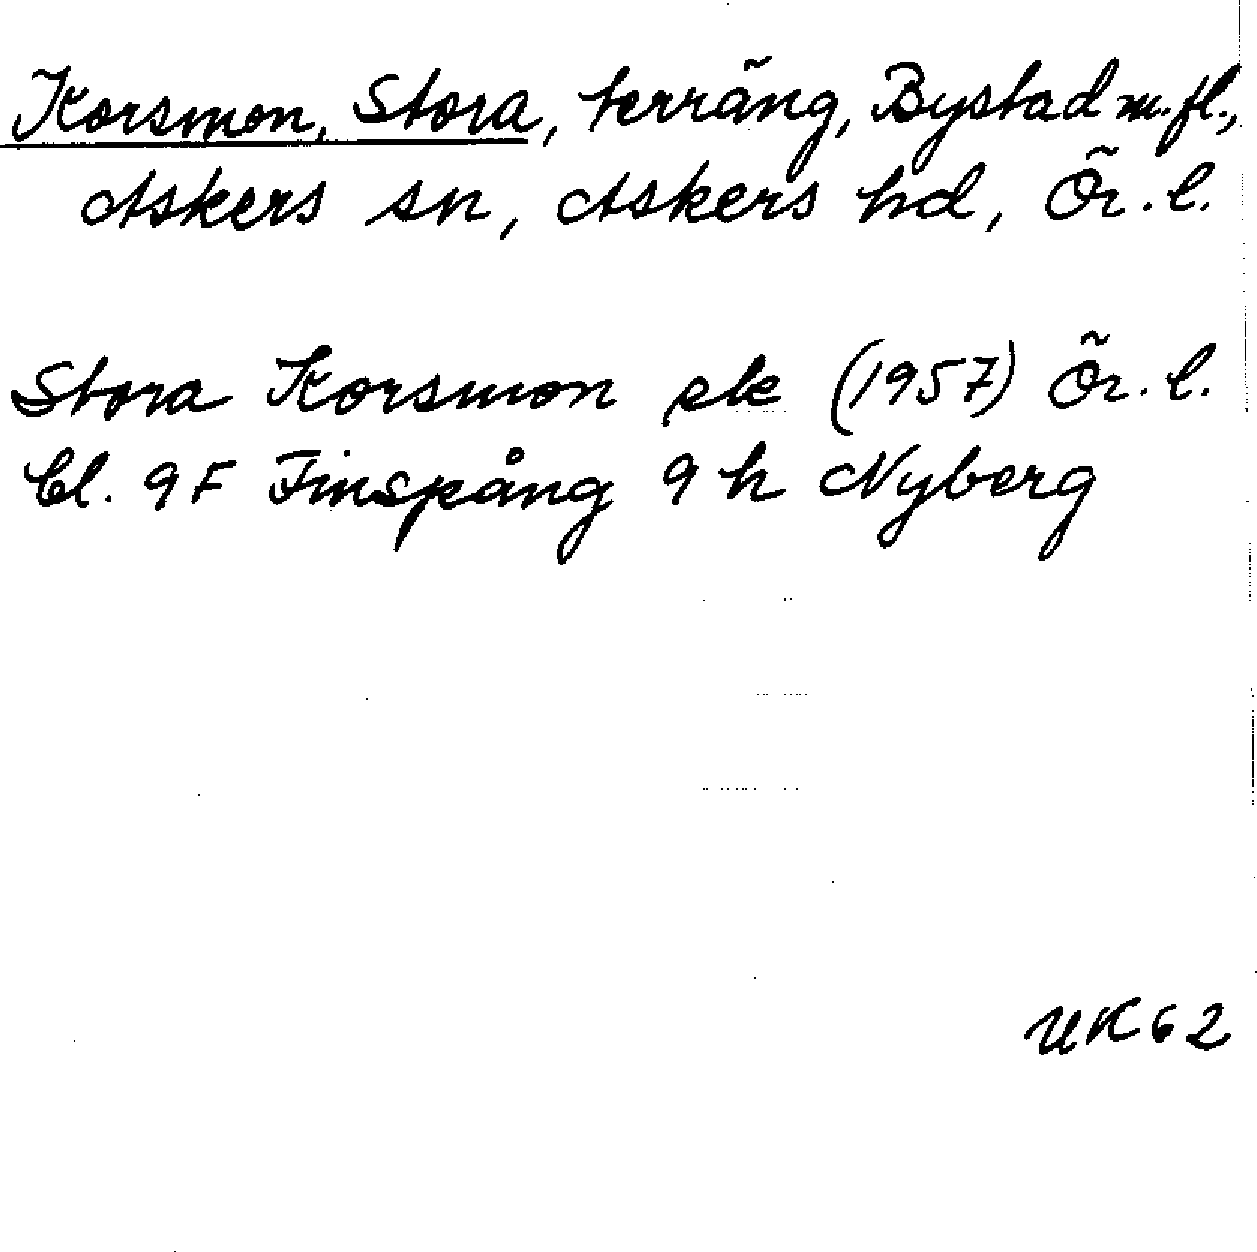 Korsmon, Stora, terräng, Bystad m.fl.,
Askers sn, Askers hd, Ör. l.
Stora Korsmon ek (1957) Ör. l.
bl. 9F Finspång 9 h Nyberg
UK 62